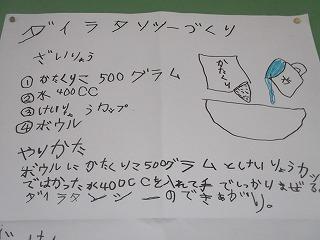 ダイラタンシーづくり
ざいりょう
①かたくりこ 500グラム
②水 400CC
③けいりょうカップ
④ボウル
かたくり
水
やりかた
ボウルにかたくりこ500グラムとけいりょうカップ
ではかった水400CCを入れて手でしっかりまぜる。
ダイラタンシーのできあがり。